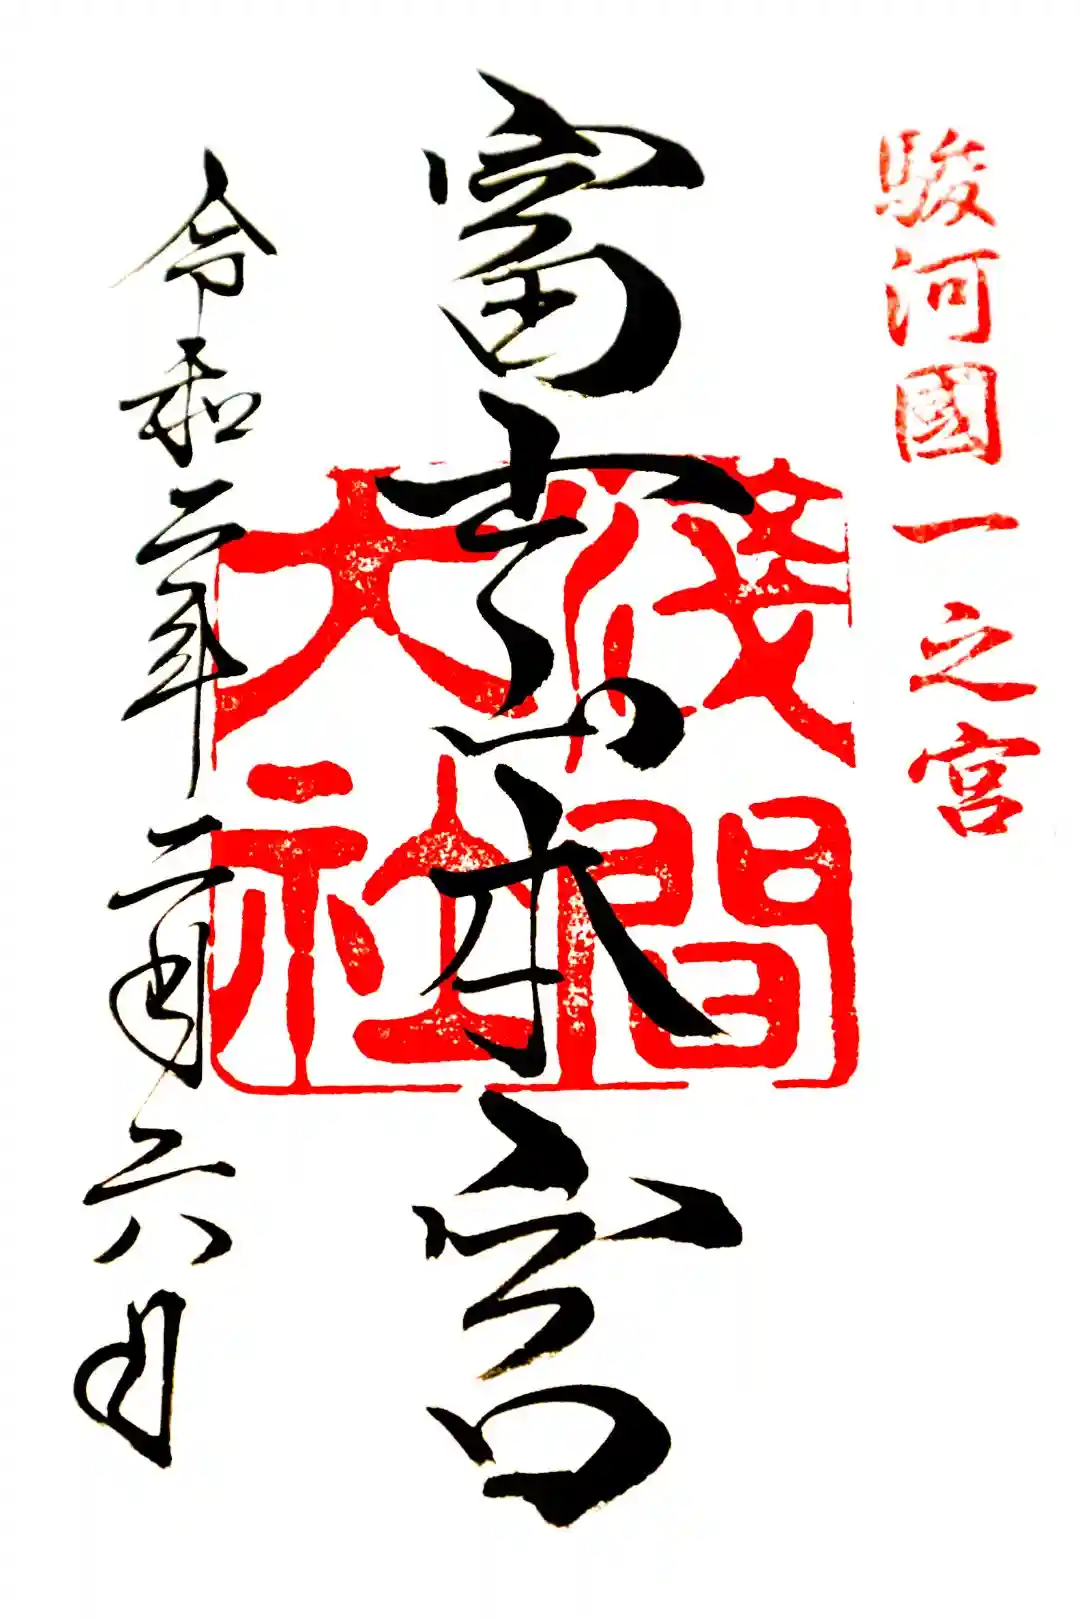 駿河國一之宮
富士山本宮
淺間
大社
令和二年二月六日